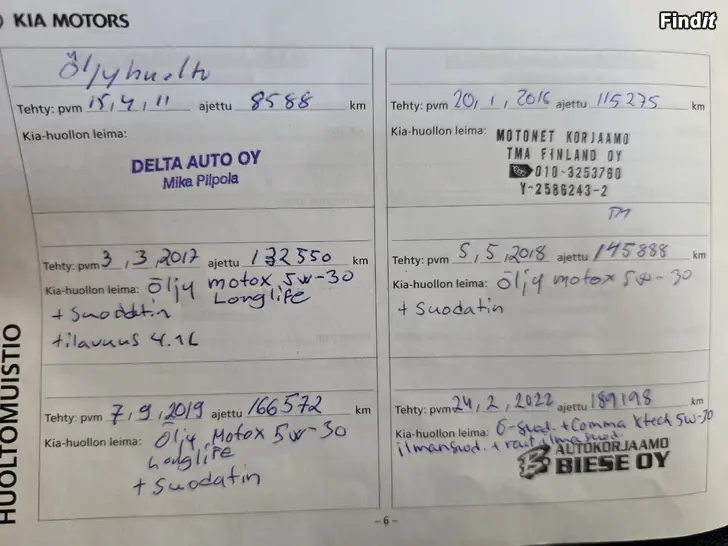 KIA MOTORS
Findit
HUOLTOMUISTIO
Öljyhuolto
Tehty: pvm 15,4,11 ajettu 8588 km
Kia-huollon leima:
DELTA AUTO OY
Mika Pilpola
Tehty: pvm 20,1,2016 ajettu 115275 km
Kia-huollon leima:
MOTONET KORJAAMO
TMA FINLAND OY
010-3253760
Y-2586243-2
TM
Tehty: pvm 3,3,2017 ajettu 132550 km
Kia-huollon leima: Öljy motox 5w-30
Longlife
+ Suodatin
tilavuus 4.1L
Tehty: pvm 5,5,2018 ajettu 145888 km
Kia-huollon leima: Öljy motox 5w-30
+ Suodatin
Tehty: pvm 7,9,2019 ajettu 166572 km
Kia-huollon leima: Öljy Motox 5w-30
Longlife
+ Suodatin
Tehty: pvm 24,2,2022 ajettu 189198 km
Kia-huollon leima: Ö-suod. + Comma Xtech 5w-30
ilmansuod. + rait.ilmasuod.
AUTOKORJAAMO
BIESE OY
– 6 –